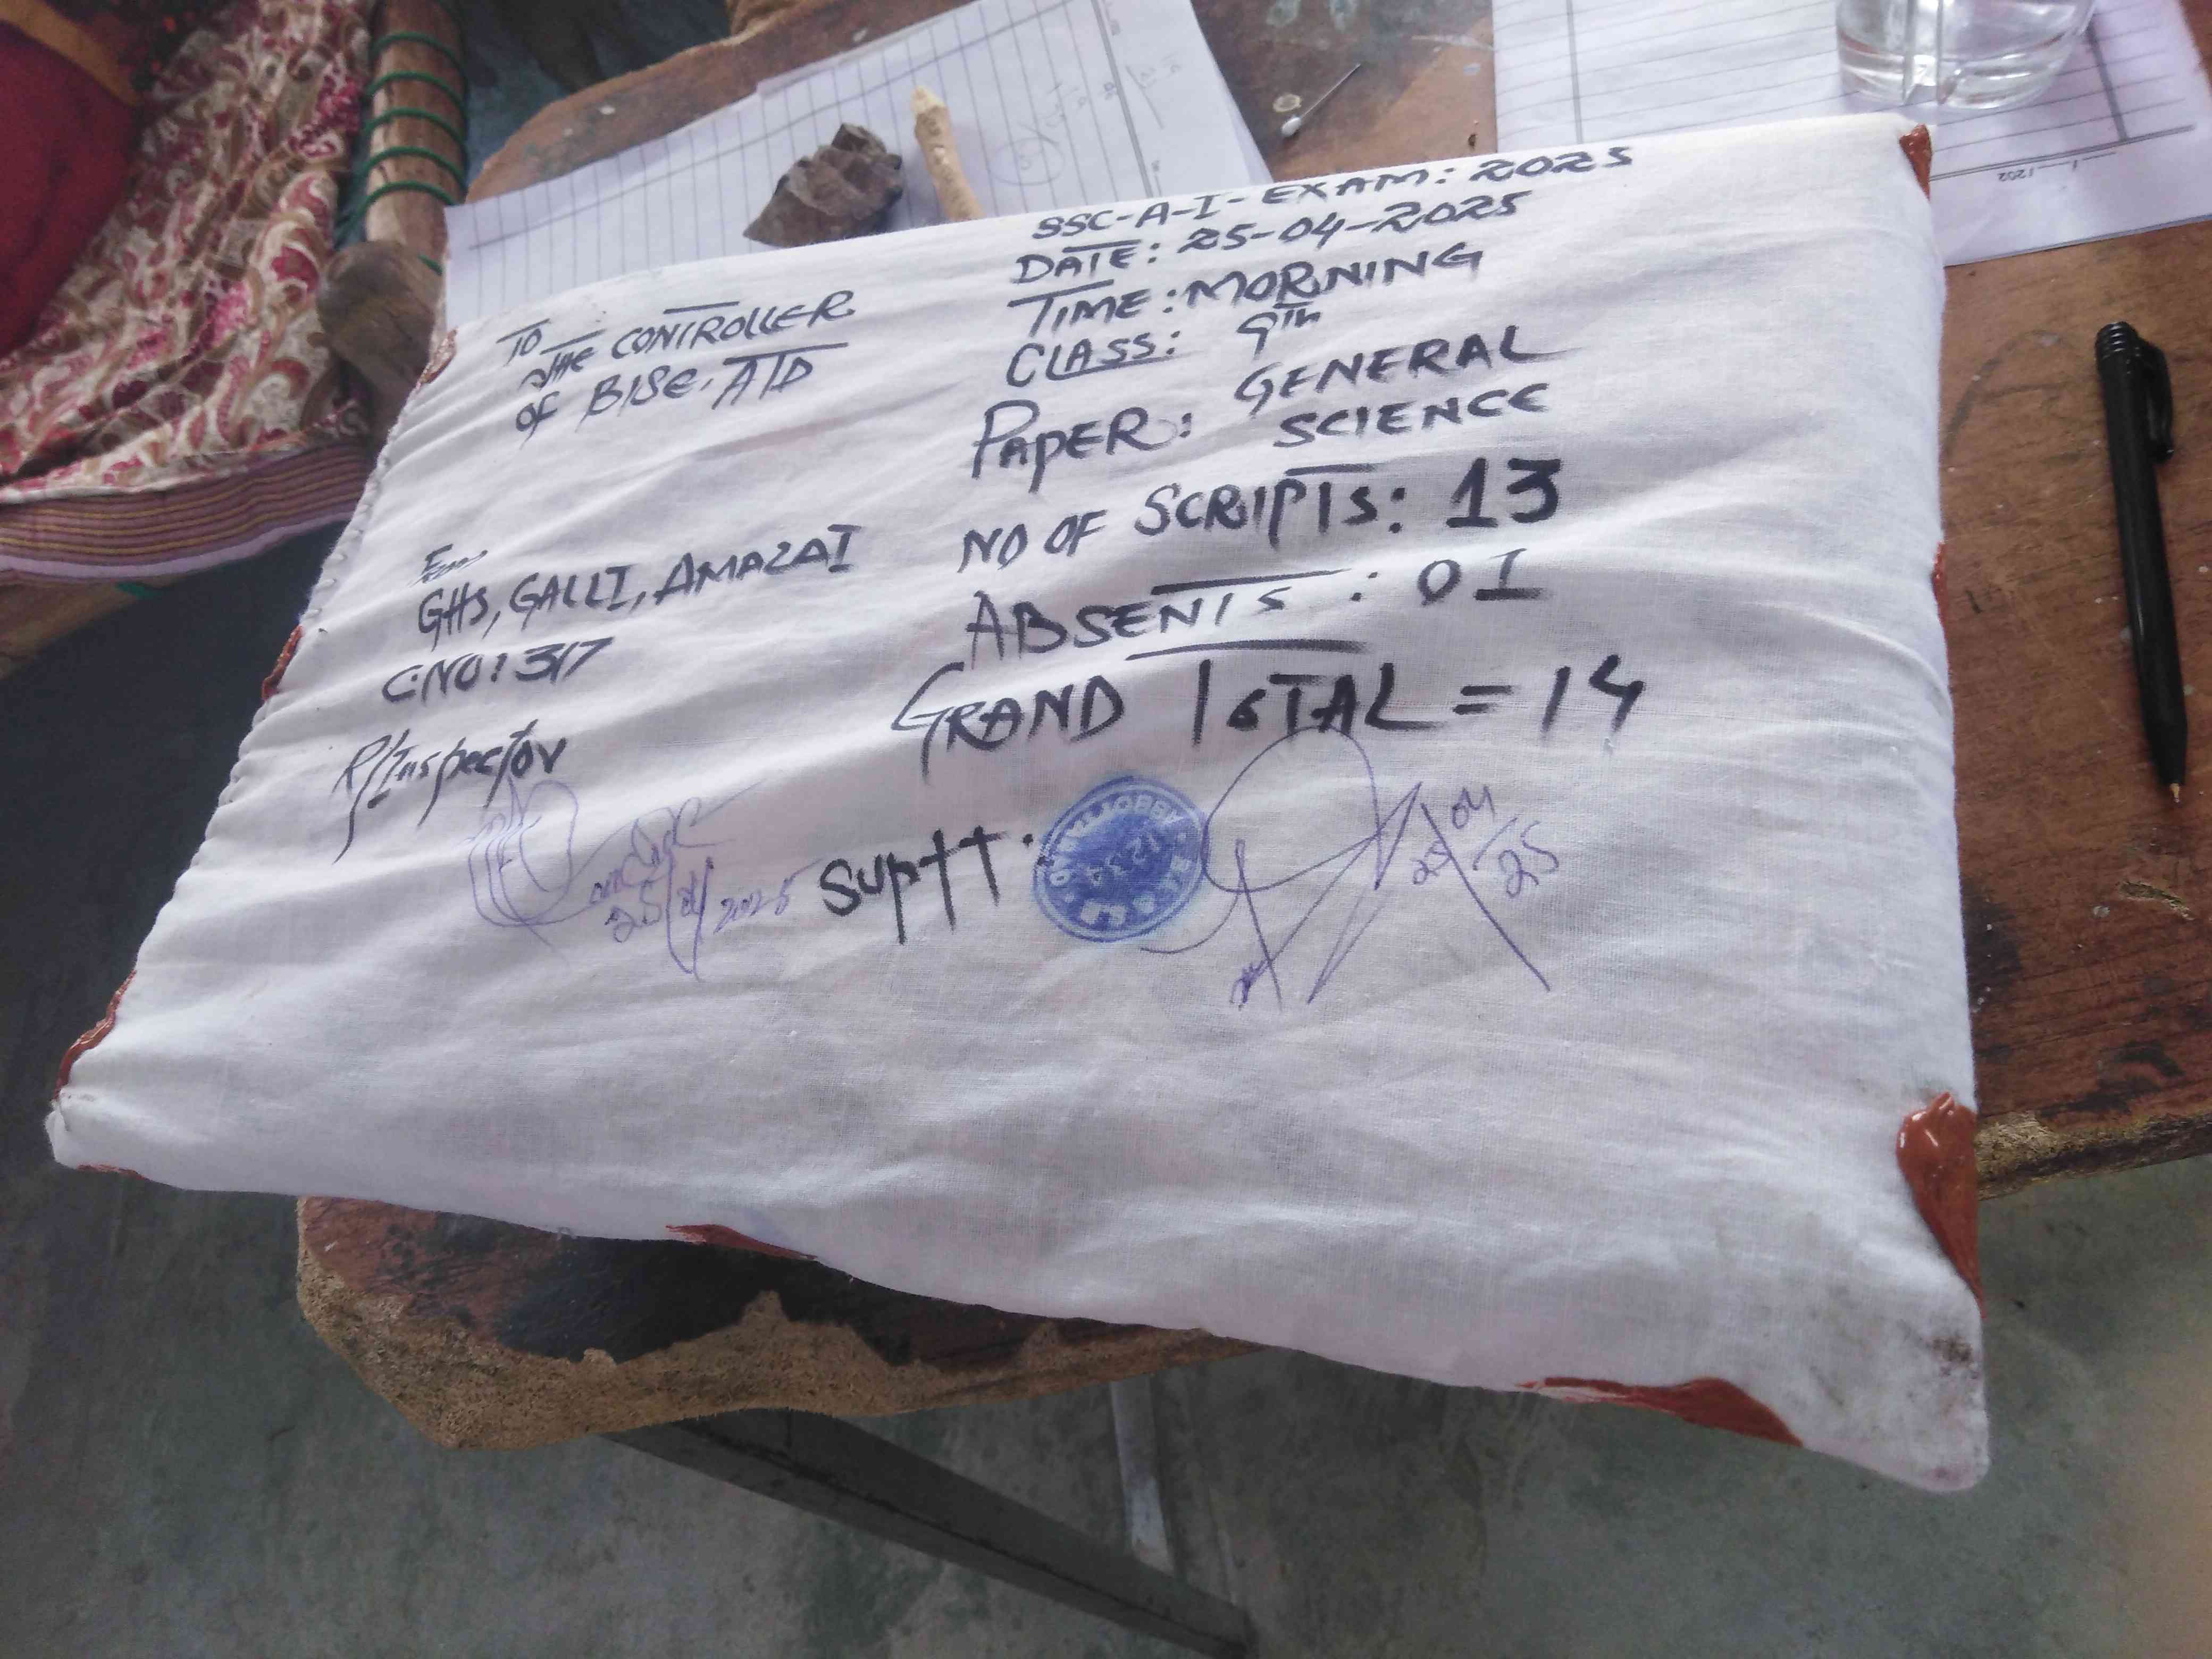 SSC-A-I-EXAM: 2025
DATE: 25-04-2025
TIME: MORNING
CLASS: 9Th
PAPER: GENERAL
SCIENCE
NO OF SCRIPTS: 13
ABSENTS: 01
GRAND TOTAL = 14
TO
The CONTROLLER
OF BISE, ATD
From
GHS, GALLI, AMAZAI
C.NO: 317
R/Inspector
25/04/2025
Suptt.
25/04/25